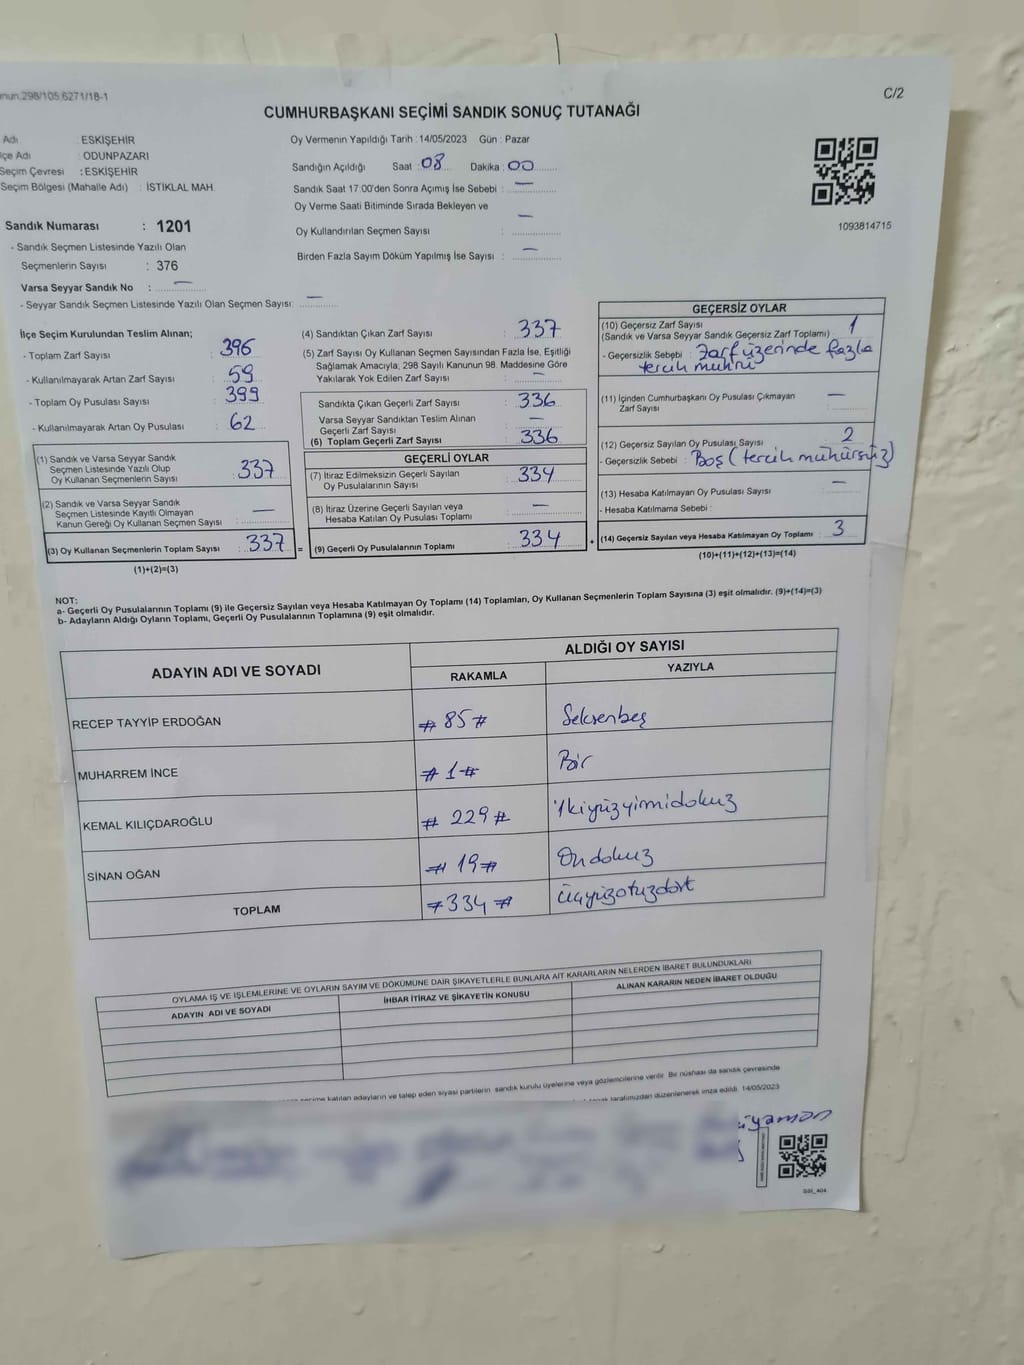 nun.298/105.6271/18-1
C/2
CUMHURBAŞKANI SEÇİMİ SANDIK SONUÇ TUTANAĞI
Adı : ESKİŞEHİR
lçe Adı : ODUNPAZARI
Seçim Çevresi : ESKİŞEHİR
Seçim Bölgesi (Mahalle Adı) : İSTİKLAL MAH.
Oy Vermenin Yapıldığı Tarih : 14/05/2023 Gün : Pazar
Sandığın Açıldığı Saat : 08 Dakika : 00
Sandık Saat 17:00'den Sonra Açımış İse Sebebi : —
Oy Verme Saati Bitiminde Sırada Bekleyen ve
Oy Kullandırılan Seçmen Sayısı : —
Birden Fazla Sayım Döküm Yapılmış İse Sayısı : —
1093814715
Sandık Numarası : 1201
- Sandık Seçmen Listesinde Yazılı Olan
Seçmenlerin Sayısı : 376
Varsa Seyyar Sandık No : —
- Seyyar Sandık Seçmen Listesinde Yazılı Olan Seçmen Sayısı: —
İlçe Seçim Kurulundan Teslim Alınan;
- Toplam Zarf Sayısı : 396
- Kullanılmayarak Artan Zarf Sayısı : 59
- Toplam Oy Pusulası Sayısı : 399
- Kullanılmayarak Artan Oy Pusulası : 62
(1) Sandık ve Varsa Seyyar Sandık
Seçmen Listesinde Yazılı Olup
Oy Kullanan Seçmenlerin Sayısı : 337
(2) Sandık ve Varsa Seyyar Sandık
Seçmen Listesinde Kayıtlı Olmayan
Kanun Gereği Oy Kullanan Seçmen Sayısı : —
(3) Oy Kullanan Seçmenlerin Toplam Sayısı : 337
(1)+(2)=(3)
(4) Sandıktan Çıkan Zarf Sayısı : 337
(5) Zarf Sayısı Oy Kullanan Seçmen Sayısından Fazla İse, Eşitliği
Sağlamak Amacıyla, 298 Sayılı Kanunun 98. Maddesine Göre
Yakılarak Yok Edilen Zarf Sayısı : —
Sandıkta Çıkan Geçerli Zarf Sayısı : 336
Varsa Seyyar Sandıktan Teslim Alınan
Geçerli Zarf Sayısı : —
(6) Toplam Geçerli Zarf Sayısı : 336
GEÇERLİ OYLAR
(7) İtiraz Edilmeksizin Geçerli Sayılan
Oy Pusulalarının Sayısı : 334
(8) İtiraz Üzerine Geçerli Sayılan veya
Hesaba Katılan Oy Pusulası Toplamı : —
= (9) Geçerli Oy Pusulalarının Toplamı : 334
GEÇERSİZ OYLAR
(10) Geçersiz Zarf Sayısı
(Sandık ve Varsa Seyyar Sandık Geçersiz Zarf Toplamı) : 1
- Geçersizlik Sebebi : Zarf üzerinde fazla
tercih mührü
(11) İçinden Cumhurbaşkanı Oy Pusulası Çıkmayan
Zarf Sayısı : —
(12) Geçersiz Sayılan Oy Pusulası Sayısı : 2
- Geçersizlik Sebebi : Boş (tercih mühürsüz)
(13) Hesaba Katılmayan Oy Pusulası Sayısı : —
- Hesaba Katılmama Sebebi :
+ (14) Geçersiz Sayılan veya Hesaba Katılmayan Oy Toplamı : 3
(10)+(11)+(12)+(13)=(14)
NOT:
a- Geçerli Oy Pusulalarının Toplamı (9) ile Geçersiz Sayılan veya Hesaba Katılmayan Oy Toplamı (14) Toplamları, Oy Kullanan Seçmenlerin Toplam Sayısına (3) eşit olmalıdır. (9)+(14)=(3)
b- Adayların Aldığı Oyların Toplamı, Geçerli Oy Pusulalarının Toplamına (9) eşit olmalıdır.
ADAYIN ADI VE SOYADI
ALDIĞI OY SAYISI
RAKAMLA YAZIYLA
RECEP TAYYİP ERDOĞAN # 85 # Seksenbeş
MUHARREM İNCE # 1 # Bir
KEMAL KILIÇDAROĞLU # 229 # İkiyüzyirmidokuz
SİNAN OĞAN # 19 # Ondokuz
TOPLAM # 334 # Üçyüzotuzdört
OYLAMA İŞ VE İŞLEMLERİNE VE OYLARIN SAYIM VE DÖKÜMÜNE DAİR ŞİKAYETLERLE BUNLARA AİT KARARLARIN NELERDEN İBARET BULUNDUKLARI
ADAYIN ADI VE SOYADI İHBAR İTİRAZ VE ŞİKAYETİN KONUSU ALINAN KARARIN NEDEN İBARET OLDUĞU
seçime katılan adayların ve talep eden siyasi partilerin sandık kurulu üyelerine veya gözlemcilerine verilir. Bir nüshası da sandık çevresinde
tarafımızdan düzenlenerek imza edildi. 14/05/2023